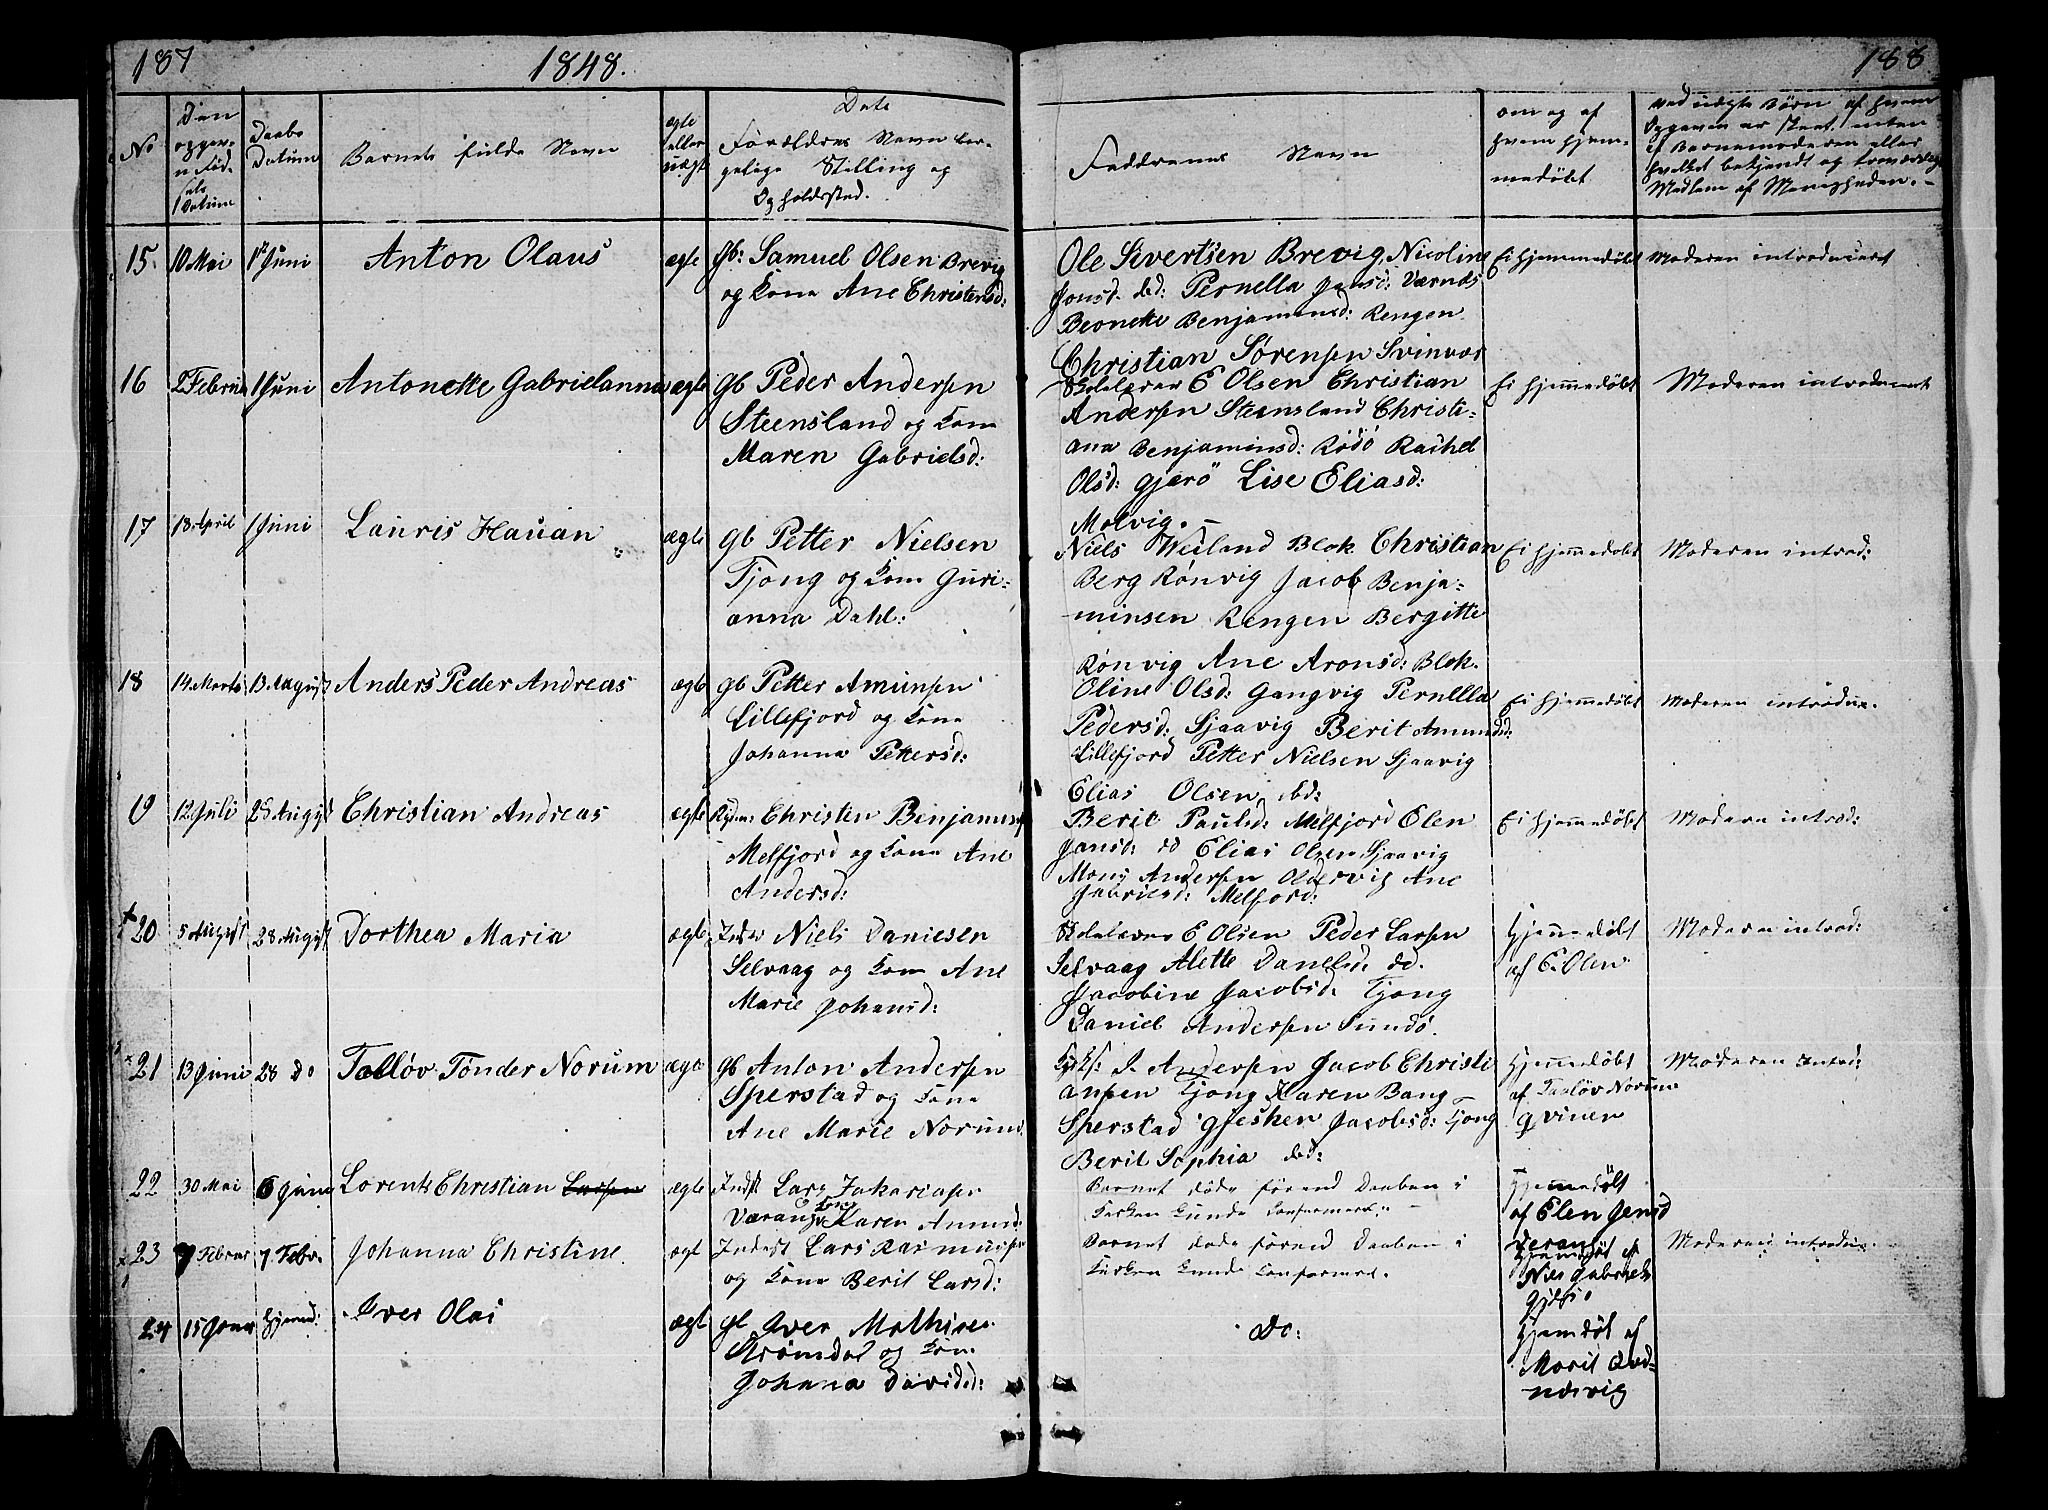 187
1848.
188
No
Den
Daabs
Datum
Barnets fulde Navn
ægte
eller
uægte
Date
Forældres Navn bor-
gelige Stilling og
Opholdssted.
Faddrenes Navn
om og af
hvem hjem-
medöbt
ved uægte Börn af hvem
Opgaven er skeet, enten
af Barnemoderen eller
hvilket bekjendt og troværdig
Medlem af Menigheden. -
15. 10 Mai 1 Juni Anton Olaus ægte gb: Samuel Olsen Brevig
og Kone Ane Christensd:
Ole Sivertsen Brevig, Nicoline
Jonsd. ibd: Pernella Jensd: Værnds
Beonette Benjaminsd: Rengen
Christian Sörensen Svinvær
Ei hjemmedöbt Moderen introduceret
16 2 Februa 1 Juni Antonette Gabrielanna ægte gb Peder Andersen
Steensland og Kone
Maren Gabrielsd:
Skolelærer E Olsen Christian
Andersen Steensland Christi-
ana Benjaminsd: Rödö Rachel
Olsd: Gjerö Lise Eliasd:
Molvig. -
Ei hjemmedöbt Moderen introduceret
17 18 April 1 Juni Lauris Hauan ægte gb Petter Nielsen
Tjong og Kone Guri-
anna Dahl:
Niels Weiland Blok. Christian
Berg Rönvig Jacob Benja-
minsen Rengen Bergitte
Rönvig Ane Aronsd: Blok.
Ei hjemmedöbt Moderen introd:
18 14 Marts 13 August Anders Peder Andreas ægte gb Petter Amunsen
Lillefjord og Kone
Johanna Pettersd:
Oline Olsd: Gangvig Pernella
Pedersd: Sjaavig Berit Amundsd:
Lillefjord Petter Nielsen Sjaavig
Elias Olsen ibd:
Ei hjemmedöbt Moderen introduc.
19 12 Juli 28 August Christian Andreas ægte Christen Benjamins
Melfjord og Kone Ane
Andersd:
Berit Paulsd: Melfjord Elen
Jansd: dd Elias Olsen Sjaavig
Mons Andersen Oldervig Ane
Gabrielsd: Melfjord:
Ei hjemmedöbt Moderen introd:
20 5 August 28 August Dorthea Maria ægte Inds Niels Danielsen
Selvaag og Kone Ane
Marie Johansd:
Skolelærer E Olsen Peder Larsen
Selvaag Alette Danelsd: dd.
Jacobine Jacobsd: Tjong
Daniel Andersen Sundö.
Hjemmedöbt
af E. Olsen
Moderen introd:
21 13 Juni 28 do Tollöv Tönder Norum ægte gb Anton Andersen
Sperstad og Kone
Ane Marie Norum
J. Andersen Jacob Christi
ansen Tjong Karen Bang -
Sperstad Gjesken Jacobsd: Tjong
Berit Sophia ibd:
Hjemmedöbt
af Taalöv Norum
Qvinen
Moderen introd:
22 30 Mai 6 Juni Lorents Christian Larsen ægte Indst Lars Zakariasen
Værang Kone Karen Amund:
Barnet döde förend Daaben i
Kirken kunde Confirmeret. -
Hjemmedöbt
af Elen Jensd
Verang
23 7 Februar 7 Febr. Johanna Christine. ægt Inderst Lars Rasmussen
og Kone Berit Larsd:
Barnet döde förend Daaben i
Kirken kunde Confirmeret.
Hjemdöbt af
Nies Gabrielsen
Moderen introduc.
24 15 Janu hjemd: Iver Olai ægt gb Iver Mathisen
Strömdal og Kone
Johana Davidsd:
Do:
Hjemdöbt af
Marit
næsvig